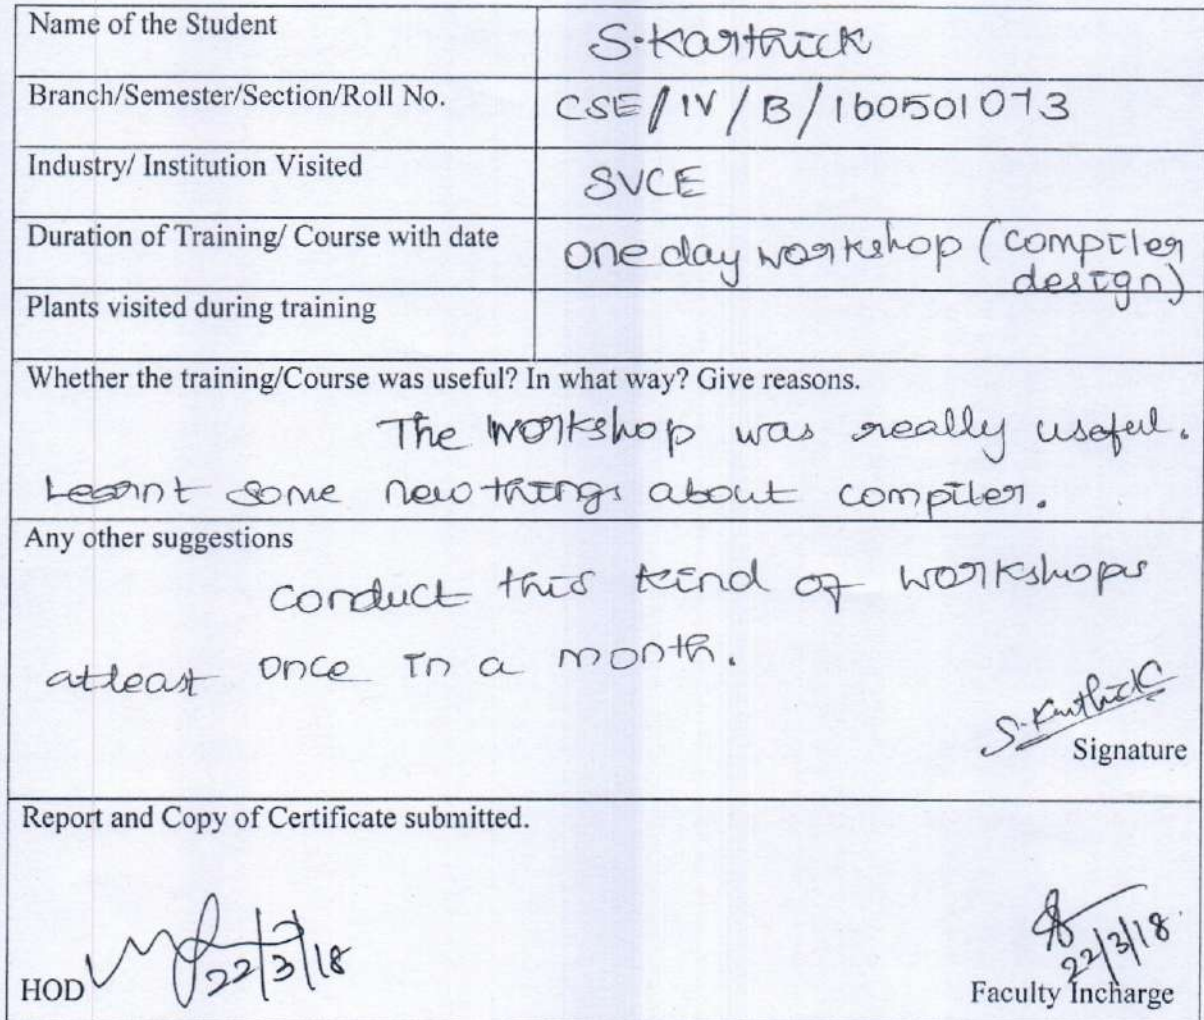 Name of the Student S.Karthick
Branch/Semester/Section/Roll No. CSE/IV/B/160501073
Industry/ Institution Visited SVCE
Duration of Training/ Course with date one day workshop (compiler
design)
Plants visited during training
Whether the training/Course was useful? In what way? Give reasons.
The workshop was really useful.
Learnt some new things about compiler.
Any other suggestions
conduct this kind of workshops
atleast once in a month.
S.Karthick
Signature
Report and Copy of Certificate submitted.
22/3/18
22/3/18
HOD
Faculty Incharge